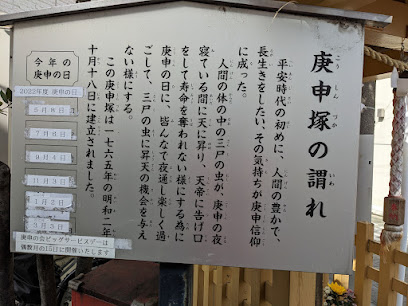 庚申塚の謂れ
こうしんづか
いわ
平安時代の初めに、人間の豊かで、
長生きをしたい、その気持ちが庚申信仰
に成った。
人間の体の中の三尸の虫が、庚申の夜
寝ている間に天に昇り、天帝に告げ口
をして寿命を奪われない様にする為に
庚申の日に、皆んなで夜通し楽しく過
ごして、三尸の虫に昇天の機会を与え
ない様にする。
この庚申塚は一七六五年の明和二年
十月十八日に建立されました。
今年の
庚申の日
2022年度 庚申の日
5月8日
7月6日
9月4日
11月3日
1月2日
3月3日
庚申の会ビッグサービスデーは
偶数月の15日に開催いたします